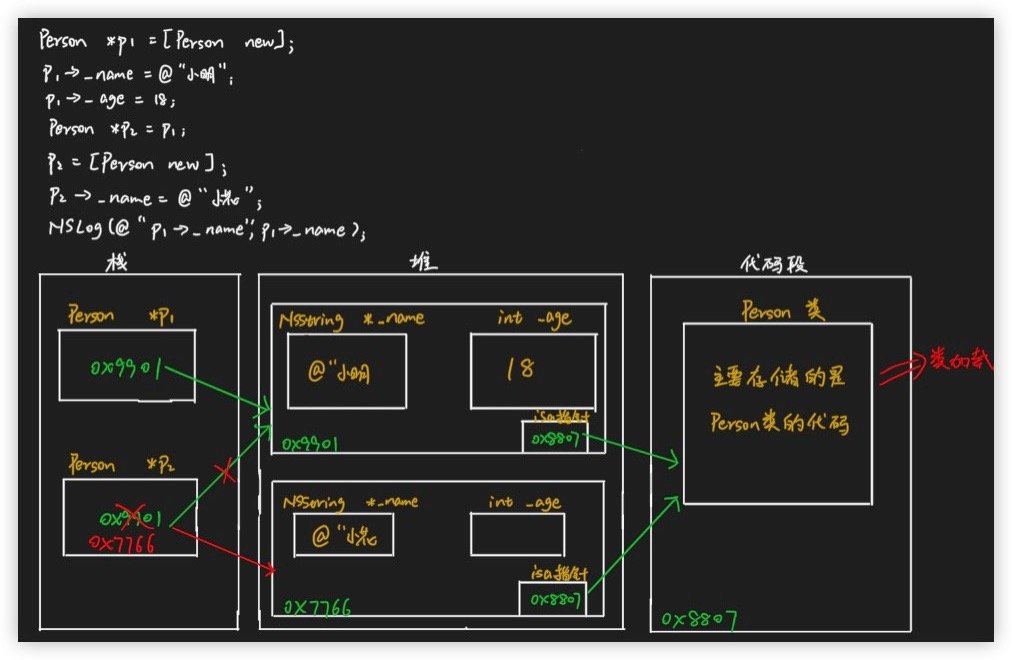 Person *p1 = [Person new];
p1->_name = @"小明";
p1->_age = 18;
Person *p2 = p1;
p2 = [Person new];
p2->_name = @"小花";
NSLog(@"p1->_name", p1->_name);
栈
堆
代码段
Person *p1
0x9901
Person *p2
0x9901
0x7766
NSString *_name
int _age
@"小明
18
isa指针
0x8807
0x9901
NSString *_name
int _age
@"小花
isa指针
0x8807
0x7766
Person 类
主要存储的是
Person类的代码
0x8807
类加载